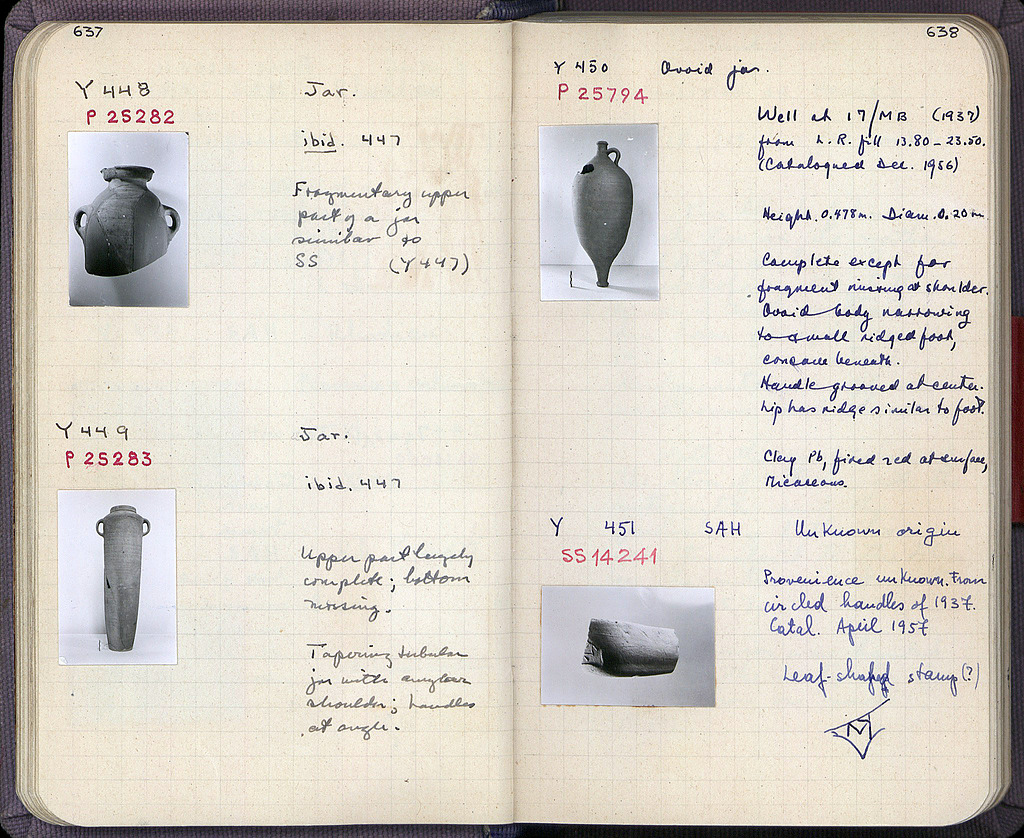 637
Y 448
P 25282
Jar.
ibid. 447
Fragmentary upper
part of a jar
similar to
SS (Y447)
Y 449
P 25283
Jar.
ibid. 447
Upper part largely
complete; bottom
missing.
Tapering tubular
jar with angular
shoulder; handles
at angle.
638
Y 450 Ovoid jar.
P 25794
Well at 17/MB (1937)
from L.R. fill 13.80 – 23.50.
(Catalogued Dec. 1956)
Height. 0.478m. Diam. 0.20m.
Complete except for
fragment missing at shoulder.
Ovoid body narrowing
to small ridged foot,
concave beneath.
Handle grooved at center.
Lip has ridge similar to foot.
Clay Pb, fired red at surface,
micaceous.
Y 451 SAH Unknown origin
SS 14241
Provenience unknown. From
circled handles of 1937.
Catal. April 1957
Leaf-shaped stamp(?)